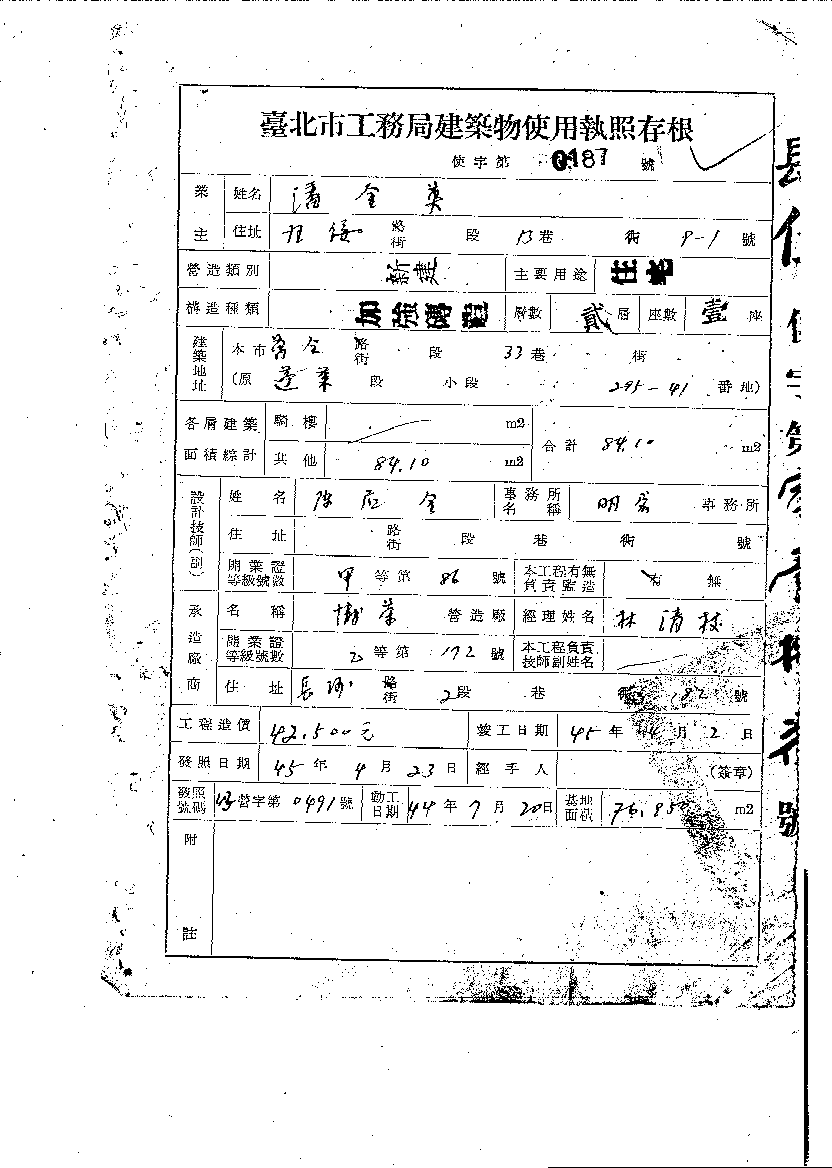 臺北市工務局建築物使用執照存根
使字第 0187 號
業主 姓名 潘金英
住址 路街 段 13巷 衖 9-1號
營造類別 新建 主要用途 住宅
構造種類 加強磚造 層數 貳層 座數 壹座
建築地址 本市 路街 段 33巷 衖
(原 蓬萊 段 小段 295-41 番地)
各層建築面積綜計 騎樓 m2 合計 84.10 m2
其他 84.10 m2
設計技師(副) 姓名 陳 金 事務所名稱 明 事務所
住址 路街 段 巷 衖 號
開業證等級號數 甲等第 86 號 本工程有無負責監造 有 無
承造廠商 名稱 營造廠 經理姓名 林清
開業證等級號數 乙等第 172 號 本工程負責技師副姓名
住址 長 路街 2段 巷 182 號
工程造價 42,500元 竣工日期 45年 4月 2日
發照日期 45年 4月 23日 經手人 (簽章)
發照號碼 營字第 0491號 動工日期 44年 7月 20日 基地面積 76.850 m2
附註